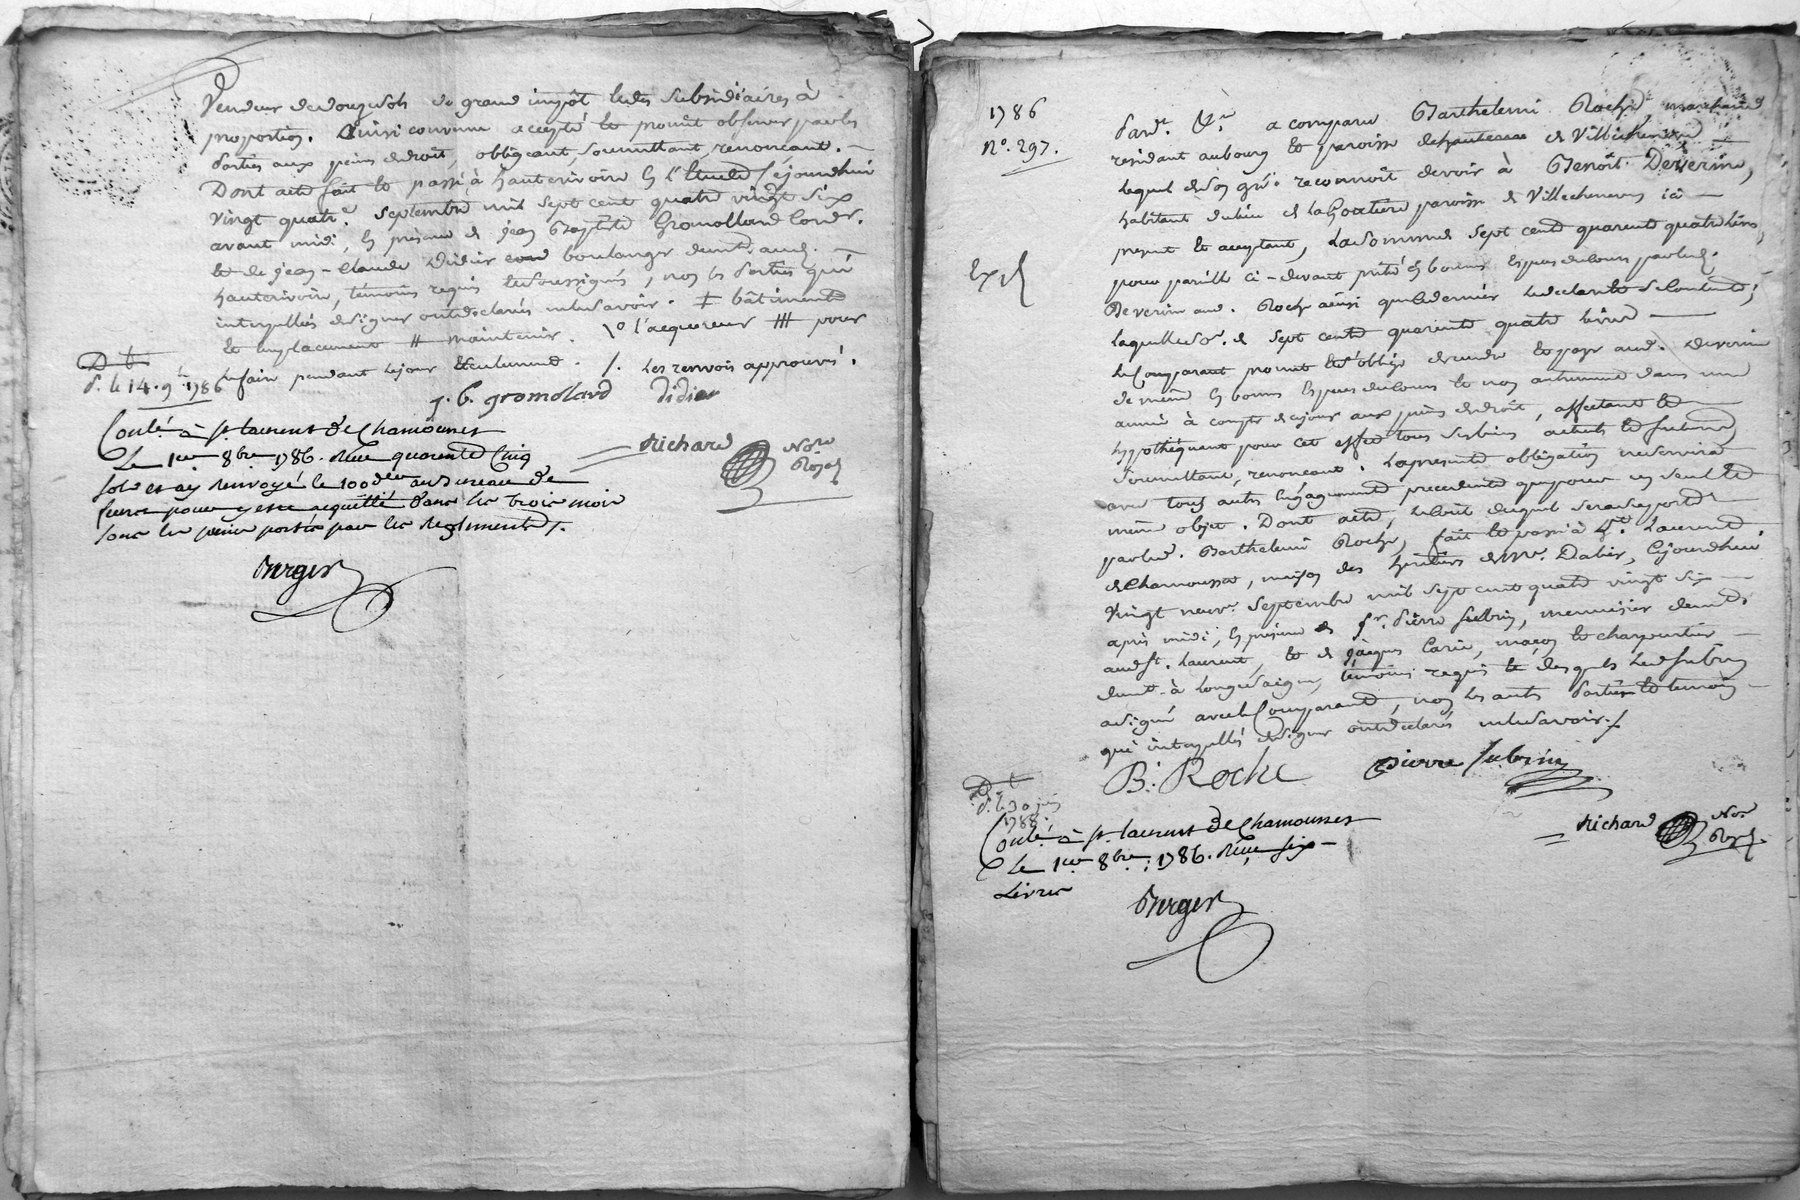 vendeur de douze sols de grand impôt & des subsidiaires à
proportion. Ainsi convenu accepté et promit observer par les
parties aux peines de droit, obligeant, soumettant, renonceant. —
Dont acte fait et passé à hauterivoire en l'Etude ce jourdhui
vingt quatre. septembre mil sept cent quatre vingt six
avant midi, en présence de jean Baptiste Gromollard Cord.r
et de jean-claude Didier boulanger demt. aud. —
hauterivoire, témoins requis & soussignés, non les parties qui
interpellés de signer ont déclarés ne le savoir. ‡ bâtiments
et emplacement # maintenir. \o l'acquereur ‡‡‡ pour
le faire pendant le jour seulement. /. les renvois approuvés.
D t
d. le 14. 9.bre 1786
j. b. gromolard didier
Richard No.re Royal
Conlé. à st. laurent de Chamousset
Le 1.er 8bre. 1786. Reçu quarente Cinq
sols et ay renvoyé le 100.de au Bureau de
feurs pour y etre acquitté dans les trois mois
sous les peines portées par les Reglements /.
Berger
1786
N.o 297.
Exp.d
Pard.t &.a a comparu Barthelemi Roche marchand
residant au bourg et paroisse de Villechenève
lequel de son gré reconnoît devoir à Benoît Deverine,
habitant du lieu de la Goutière paroisse de Villechenève ici —
présent et acceptant, la somme de sept cents quarente quatre livres,
pour pareille ci-devant prêtée en bonnes espèces du cours par led.
Deverine aud. Roche ainsi que ce dernier le declare & se contente;
laquelle so.e de sept cents quarente quatre livres —
le Comparant promet & s'oblige de rendre et payer aud. Deverine
de même en bonnes espèces du cours et non autrement dans une
année à compter de ce jour aux peines de droit, affectant et
hypothéquant pour cet effet tous ses biens actuels et futurs,
soumettant, renonceant. La présente obligation ne servira
avec tous autres engagements precedents que pour un seul et
même objet. Dont acte, le coût duquel sera supporté
par led. Barthelemi Roche, fait et passé à St. Laurent
de Chamousset, maison des héritiers de Mr. Dabier, ce jourdhui
vingt neuv.e septembre mil sept cent quatre vingt six —
après midi, en présence de Sr. Pierre Subrin, menuisier demt.
aud. St. Laurent, et de jacques Carie, maçon et charpentier —
demt. à Longessaigne, témoins requis desquels led. Subrin
a signé avec le Comparant, non les autres parties et témoin —
qui interpellés de signer ont déclarés ne le savoir. /
B: Roche pierre subrin
D t
d. le 30 juin
1788.
Richard No.re Royal
Conlé. à st. laurent de Chamousset
Le 1.er 8bre. 1786. Reçu six —
Livres
Berger